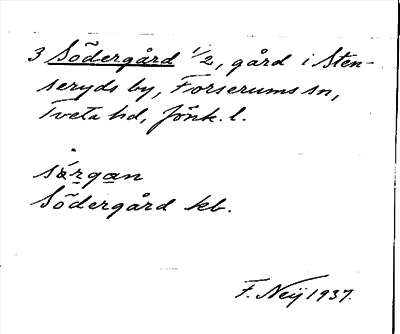 3 Södergård 1/2, gård i Sten-
seryds by, Forserums sn,
Tveta hd, Jönk. l.
sörgan
Södergård kb.
F. Neij 1937.